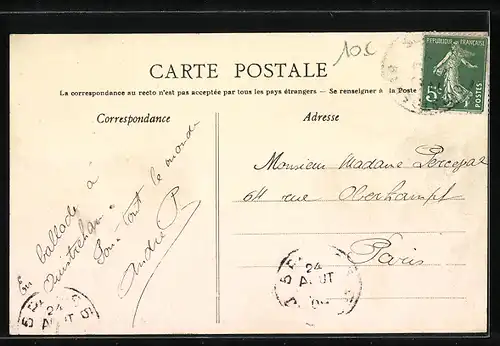 10c
CARTE POSTALE
REPUBLIQUE FRANÇAISE
5c
POSTES
La correspondance au recto n'est pas acceptée par tous les pays étrangers — Se renseigner à la Poste
Correspondance
Adresse
En ballade à
Ouistreham
tout le monde
André P
Monsieur Madame Perceval
64 rue Oberkampf
Paris
24
AOUT
24
AOUT